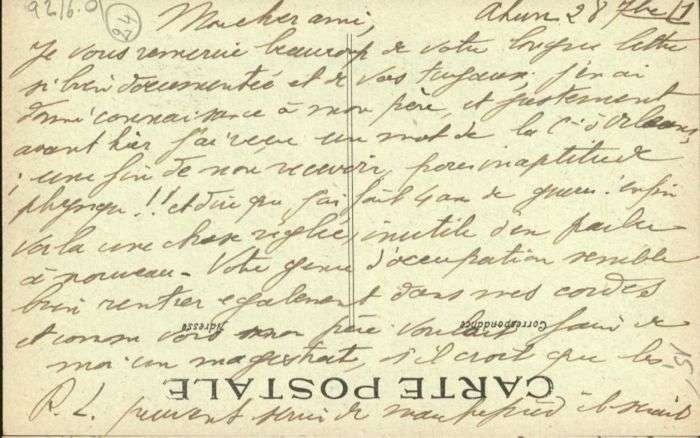 92/6.0
24
Mon cher ami, Ahun 28 7bre 1
Je vous remercie beaucoup de votre longue lettre
si bien documentée et de vos tuyaux, j'en ai
donné connaissance à mon père, et justement
avant hier j'ai reçu un mot de la Cie d'Orléans,
; une fin de non recevoir, pour inaptitude
physique!! et dire que j'ai fait 4 ans de guerre! enfin
voilà une chose réglée, inutile d'en parler
à nouveau - Votre genre d'occupation semble
bien rentrer également dans mes cordes
Adresse Correspondance
et comme vous mon père voulait faire de
moi un magistrat, s'il croit que les
CARTE POSTALE
R. L. peuvent servir de